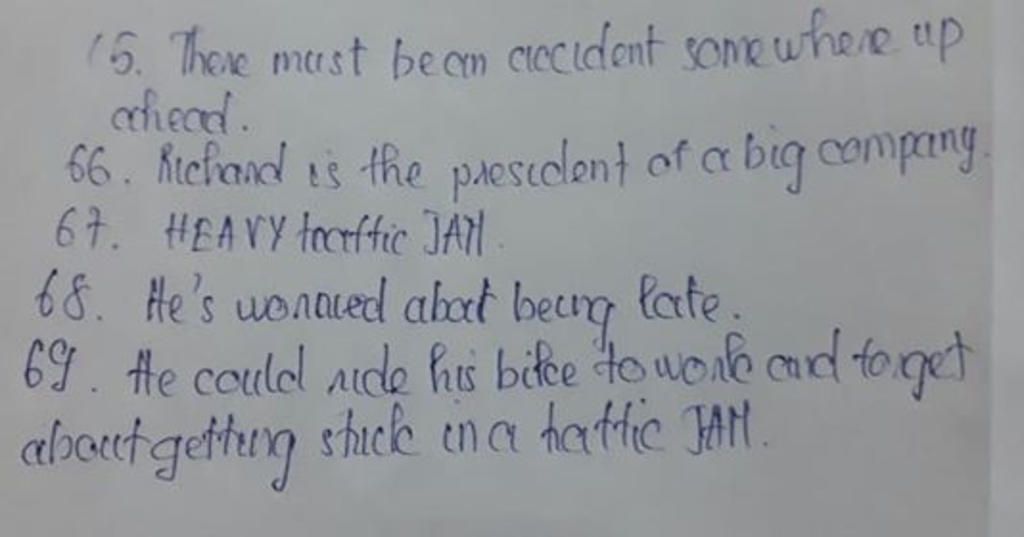 15. There must be an accident somewhere up
ahead.
66. Richard is the president of a big company.
67. HEAVY traffic JAM.
68. He's worried about being late.
69. He could ride his bike to work and forget
about getting stuck in a traffic JAM.